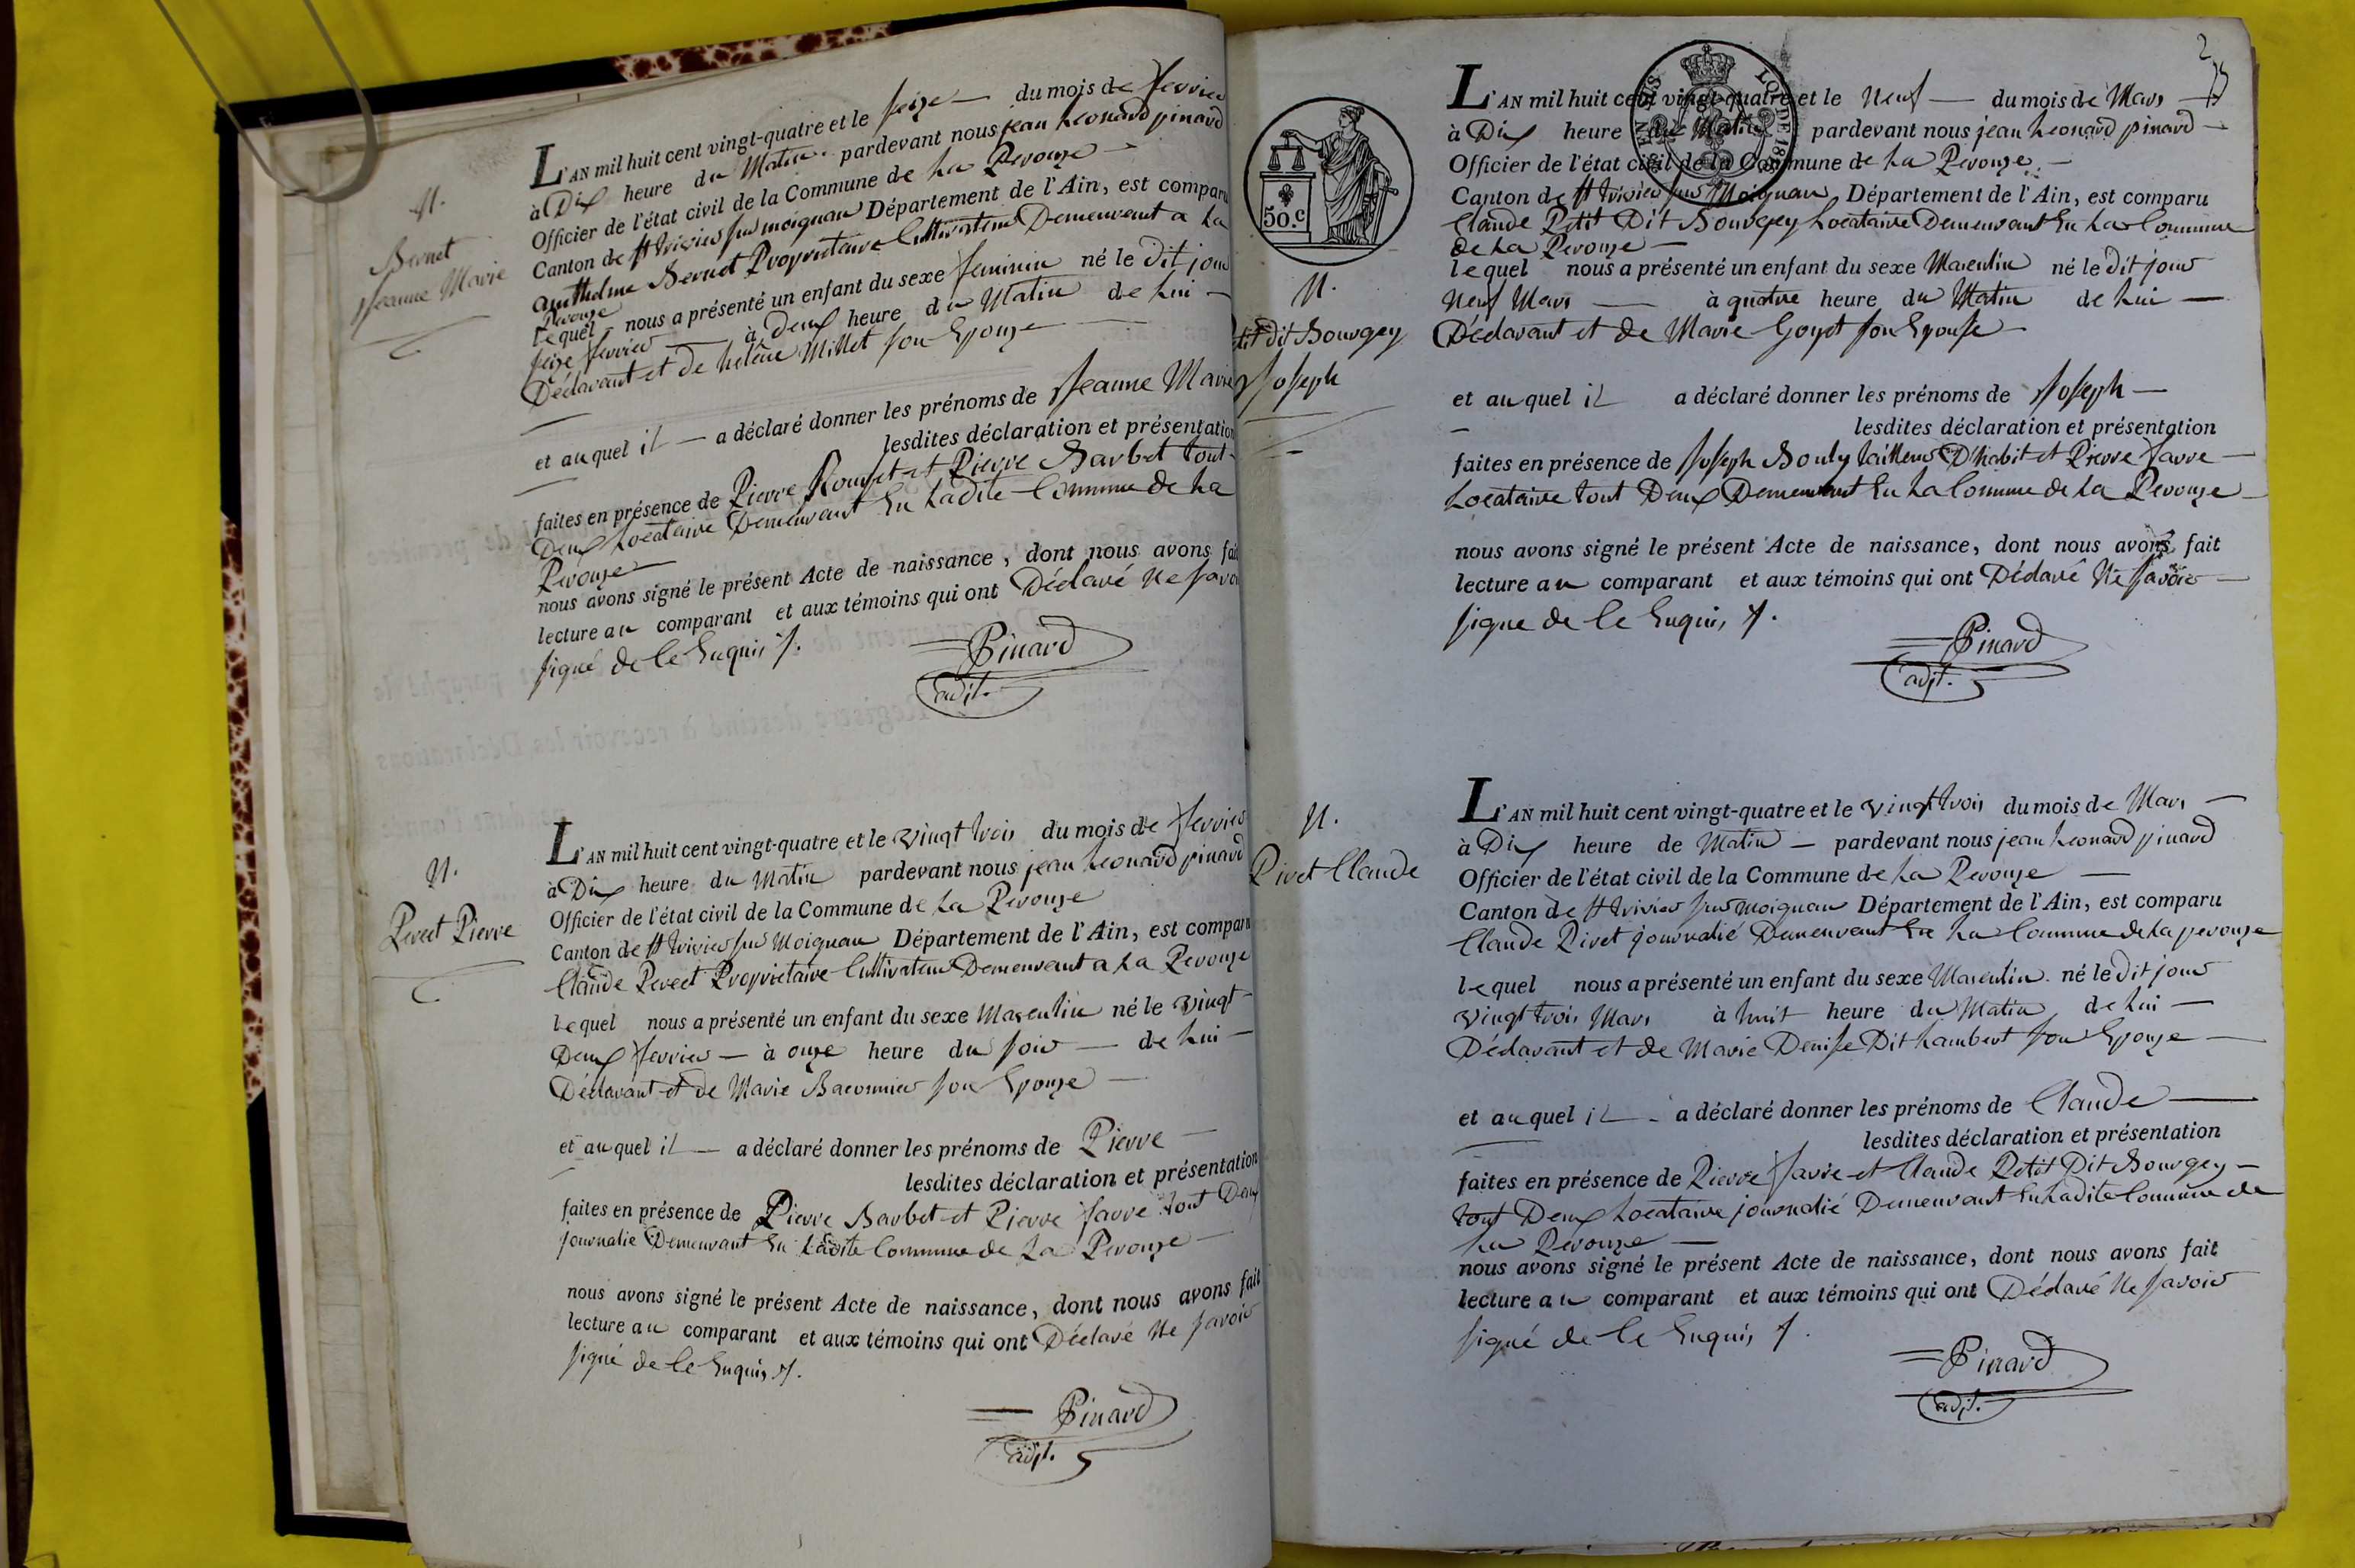 N.
Bernet
Jeanne Marie
L'AN mil huit cent vingt-quatre et le seize du mois de fevrier
à Dix heure du Matin pardevant nous jean Leonard pinard
Officier de l'état civil de la Commune de La Perouze
Canton de St trivier sur moignan Département de l'Ain, est comparu
antthelme Bernet Proprietaire Cultivateur Demeurant a La
Perouze
lequel nous a présenté un enfant du sexe feminin né le Dit jour
seize fevrier à Deux heure du Matin de Lui
Déclarant et de helêne Millet son Epouze
et auquel il a déclaré donner les prénoms de Jeanne Marie
lesdites déclaration et présentation
faites en présence de Pierre et Pierre Barbet tout
Deux Locataire Demeurant En Ladite Commune de La
Perouze
nous avons signé le présent Acte de naissance, dont nous avons fait
lecture au comparant et aux témoins qui ont Déclaré Ne savoir
signé de Ce Enquis
Pinard
adjt.
N.
Perect Pierre
L'AN mil huit cent vingt-quatre et le vingt trois du mois de fevrier
à Dix heure du Matin pardevant nous jean Leonard pinard
Officier de l'état civil de la Commune de La Perouze
Canton de St trivier sur Moignan Département de l'Ain, est comparu
Claude Perect Proprietaire Cultivateur Demeurant a La Perouze
lequel nous a présenté un enfant du sexe Masculin né le vingt
Deux fevrier à onze heure du soir de Lui
Déclarant et de Marie Baconnier son Epouze
et auquel il a déclaré donner les prénoms de Pierre
lesdites déclaration et présentation
faites en présence de Pierre Barbet et Pierre favre tout Deux
journalie Demeurant En Ladite Commune de La Perouze
nous avons signé le présent Acte de naissance, dont nous avons fait
lecture au comparant et aux témoins qui ont Déclaré Ne savoir
signé de Ce Enquis
Pinard
adjt.
2
50.c
N.
Petit Dit Bourgey
Joseph
L'AN mil huit cent vingt-quatre et le Neuf du mois de Mars
à Dix heure du Matin pardevant nous jean Leonard pinard
Officier de l'état civil de la Commune de La Perouze
Canton de St trivier sur Moignan Département de l'Ain, est comparu
Claude Petit Dit Bourgey Locataire Demeurant En La Commune
de La Perouze
lequel nous a présenté un enfant du sexe Masculin né le Dit jour
Neuf Mars à quatre heure du Matin de Lui
Déclarant et de Marie Goyet son Epouse
et auquel il a déclaré donner les prénoms de Joseph
lesdites déclaration et présentation
faites en présence de Joseph Bouly tailleur D'habit et Pierre favre
Locataire tout Deux Demeurant En La Commune de La Perouze
nous avons signé le présent Acte de naissance, dont nous avons fait
lecture au comparant et aux témoins qui ont Déclaré Ne savoir
signe de Ce Enquis
Pinard
adjt.
N.
Pivet Claude
L'AN mil huit cent vingt-quatre et le vingt trois du mois de Mars
à Dix heure de Matin pardevant nous jean Leonard pinard
Officier de l'état civil de la Commune de La Perouze
Canton de St trivier sur moignan Département de l'Ain, est comparu
Claude Pivet journalié Demeurant En La Commune de La perouze
lequel nous a présenté un enfant du sexe Masculin né le Dit jour
vingt trois Mars à huit heure du Matin de Lui
Déclarant et de Marie Denise Dit Lambert son Epouze
et auquel il a déclaré donner les prénoms de Claude
lesdites déclaration et présentation
faites en présence de Pierre favre et Claude Petit Dit Bourgey
tout Deux Locataire journalié Demeurant En Ladite Commune de
La Perouze
nous avons signé le présent Acte de naissance, dont nous avons fait
lecture au comparant et aux témoins qui ont Déclaré Ne savoir
signé de Ce Enquis
Pinard
adjt.